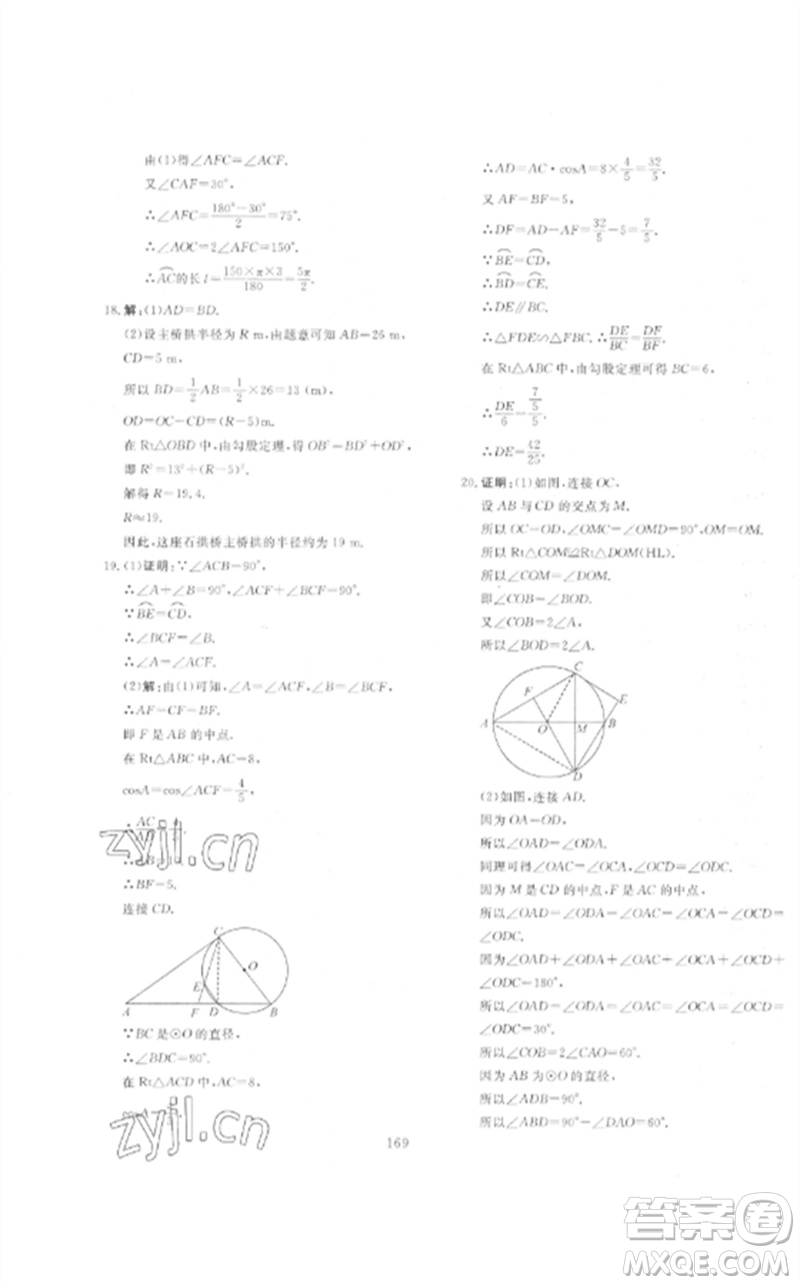 由(1)得∠AFC=∠ACF.
又∠CAF=30°,
∴∠AFC=(180°-30°)/2=75°.
∴∠AOC=2∠AFC=150°.
∴⌒AC的长 l=(150×π×3)/180=5π/2.
18.解:(1)AD=BD.
(2)设主桥拱半径为 R m,由题意可知 AB=26 m,
CD=5 m,
所以 BD=1/2 AB=1/2×26=13 (m),
OD=OC-CD=(R-5)m.
在 Rt△OBD 中,由勾股定理,得 OB²=BD²+OD²,
即 R²=13²+(R-5)².
解得 R=19.4.
R≈19.
因此,这座石拱桥主桥拱的半径约为 19 m.
19.(1)证明:∵∠ACB=90°,
∴∠A+∠B=90°,∠ACF+∠BCF=90°.
∵⌒BE=⌒CD,
∴∠BCF=∠B.
∴∠A=∠ACF.
(2)解:由(1)可知,∠A=∠ACF,∠B=∠BCF,
∴AF=CF=BF.
即 F 是 AB 的中点.
在 Rt△ABC 中,AC=8,
cosA=cos∠ACF=4/5,
∴BF=5.
连接 CD.
C
O
E
A F D B
∵BC 是⊙O 的直径,
∴∠BDC=90°.
在 Rt△ACD 中,AC=8,
zyjl.cn
zyjl.cn
∴AD=AC·cosA=8×4/5=32/5.
又 AF=BF=5,
∴DF=AD-AF=32/5-5=7/5.
∵⌒BE=⌒CD,
∴⌒BD=⌒CE.
∴DE∥BC.
∴△FDE∽△FBC.∴DE/BC=DF/BF.
在 Rt△ABC 中,由勾股定理可得 BC=6,
∴DE/6=(7/5)/5.
∴DE=42/25.
20.证明:(1)如图,连接 OC,
设 AB 与 CD 的交点为 M.
所以 OC=OD,∠OMC=∠OMD=90°,OM=OM.
所以 Rt△COM≌Rt△DOM(HL).
所以∠COM=∠DOM.
即∠COB=∠BOD.
又∠COB=2∠A,
所以∠BOD=2∠A.
C
F
E
A O M B
D
(2)如图,连接 AD.
因为 OA=OD,
所以∠OAD=∠ODA.
同理可得∠OAC=∠OCA,∠OCD=∠ODC.
因为 M 是 CD 的中点,F 是 AC 的中点,
所以∠OAD=∠ODA=∠OAC=∠OCA=∠OCD=
∠ODC.
因为∠OAD+∠ODA+∠OAC+∠OCA+∠OCD+
∠ODC=180°,
所以∠OAD=∠ODA=∠OAC=∠OCA=∠OCD=
∠ODC=30°.
所以∠COB=2∠CAO=60°.
因为 AB 为⊙O 的直径,
所以∠ADB=90°.
所以∠ABD=90°-∠DAO=60°.
169
答案卷
MXQE.COM